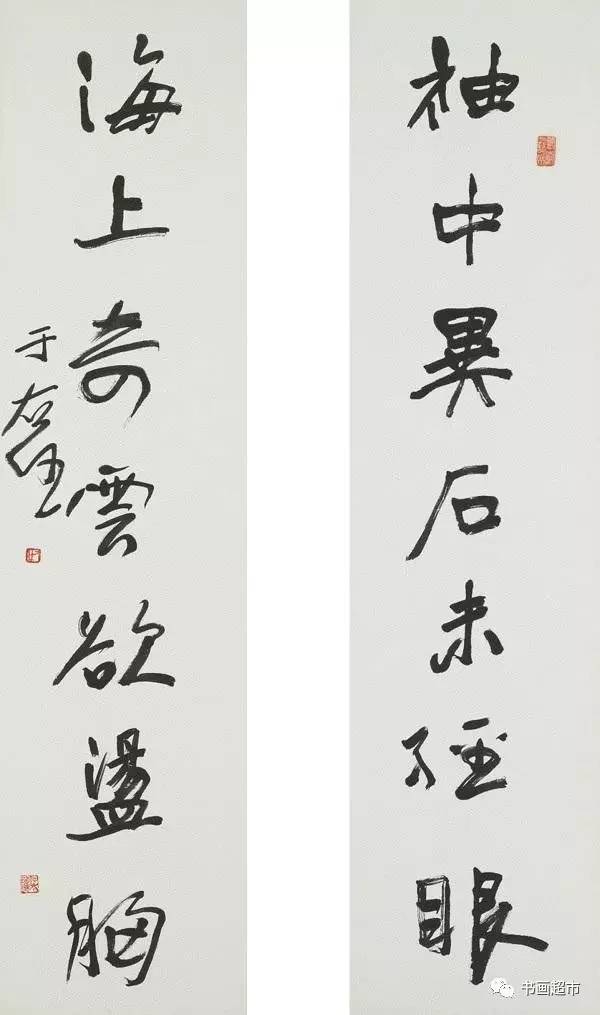 袖中異石未經眼
海上奇雲欲盪胸
于右任
书画超市